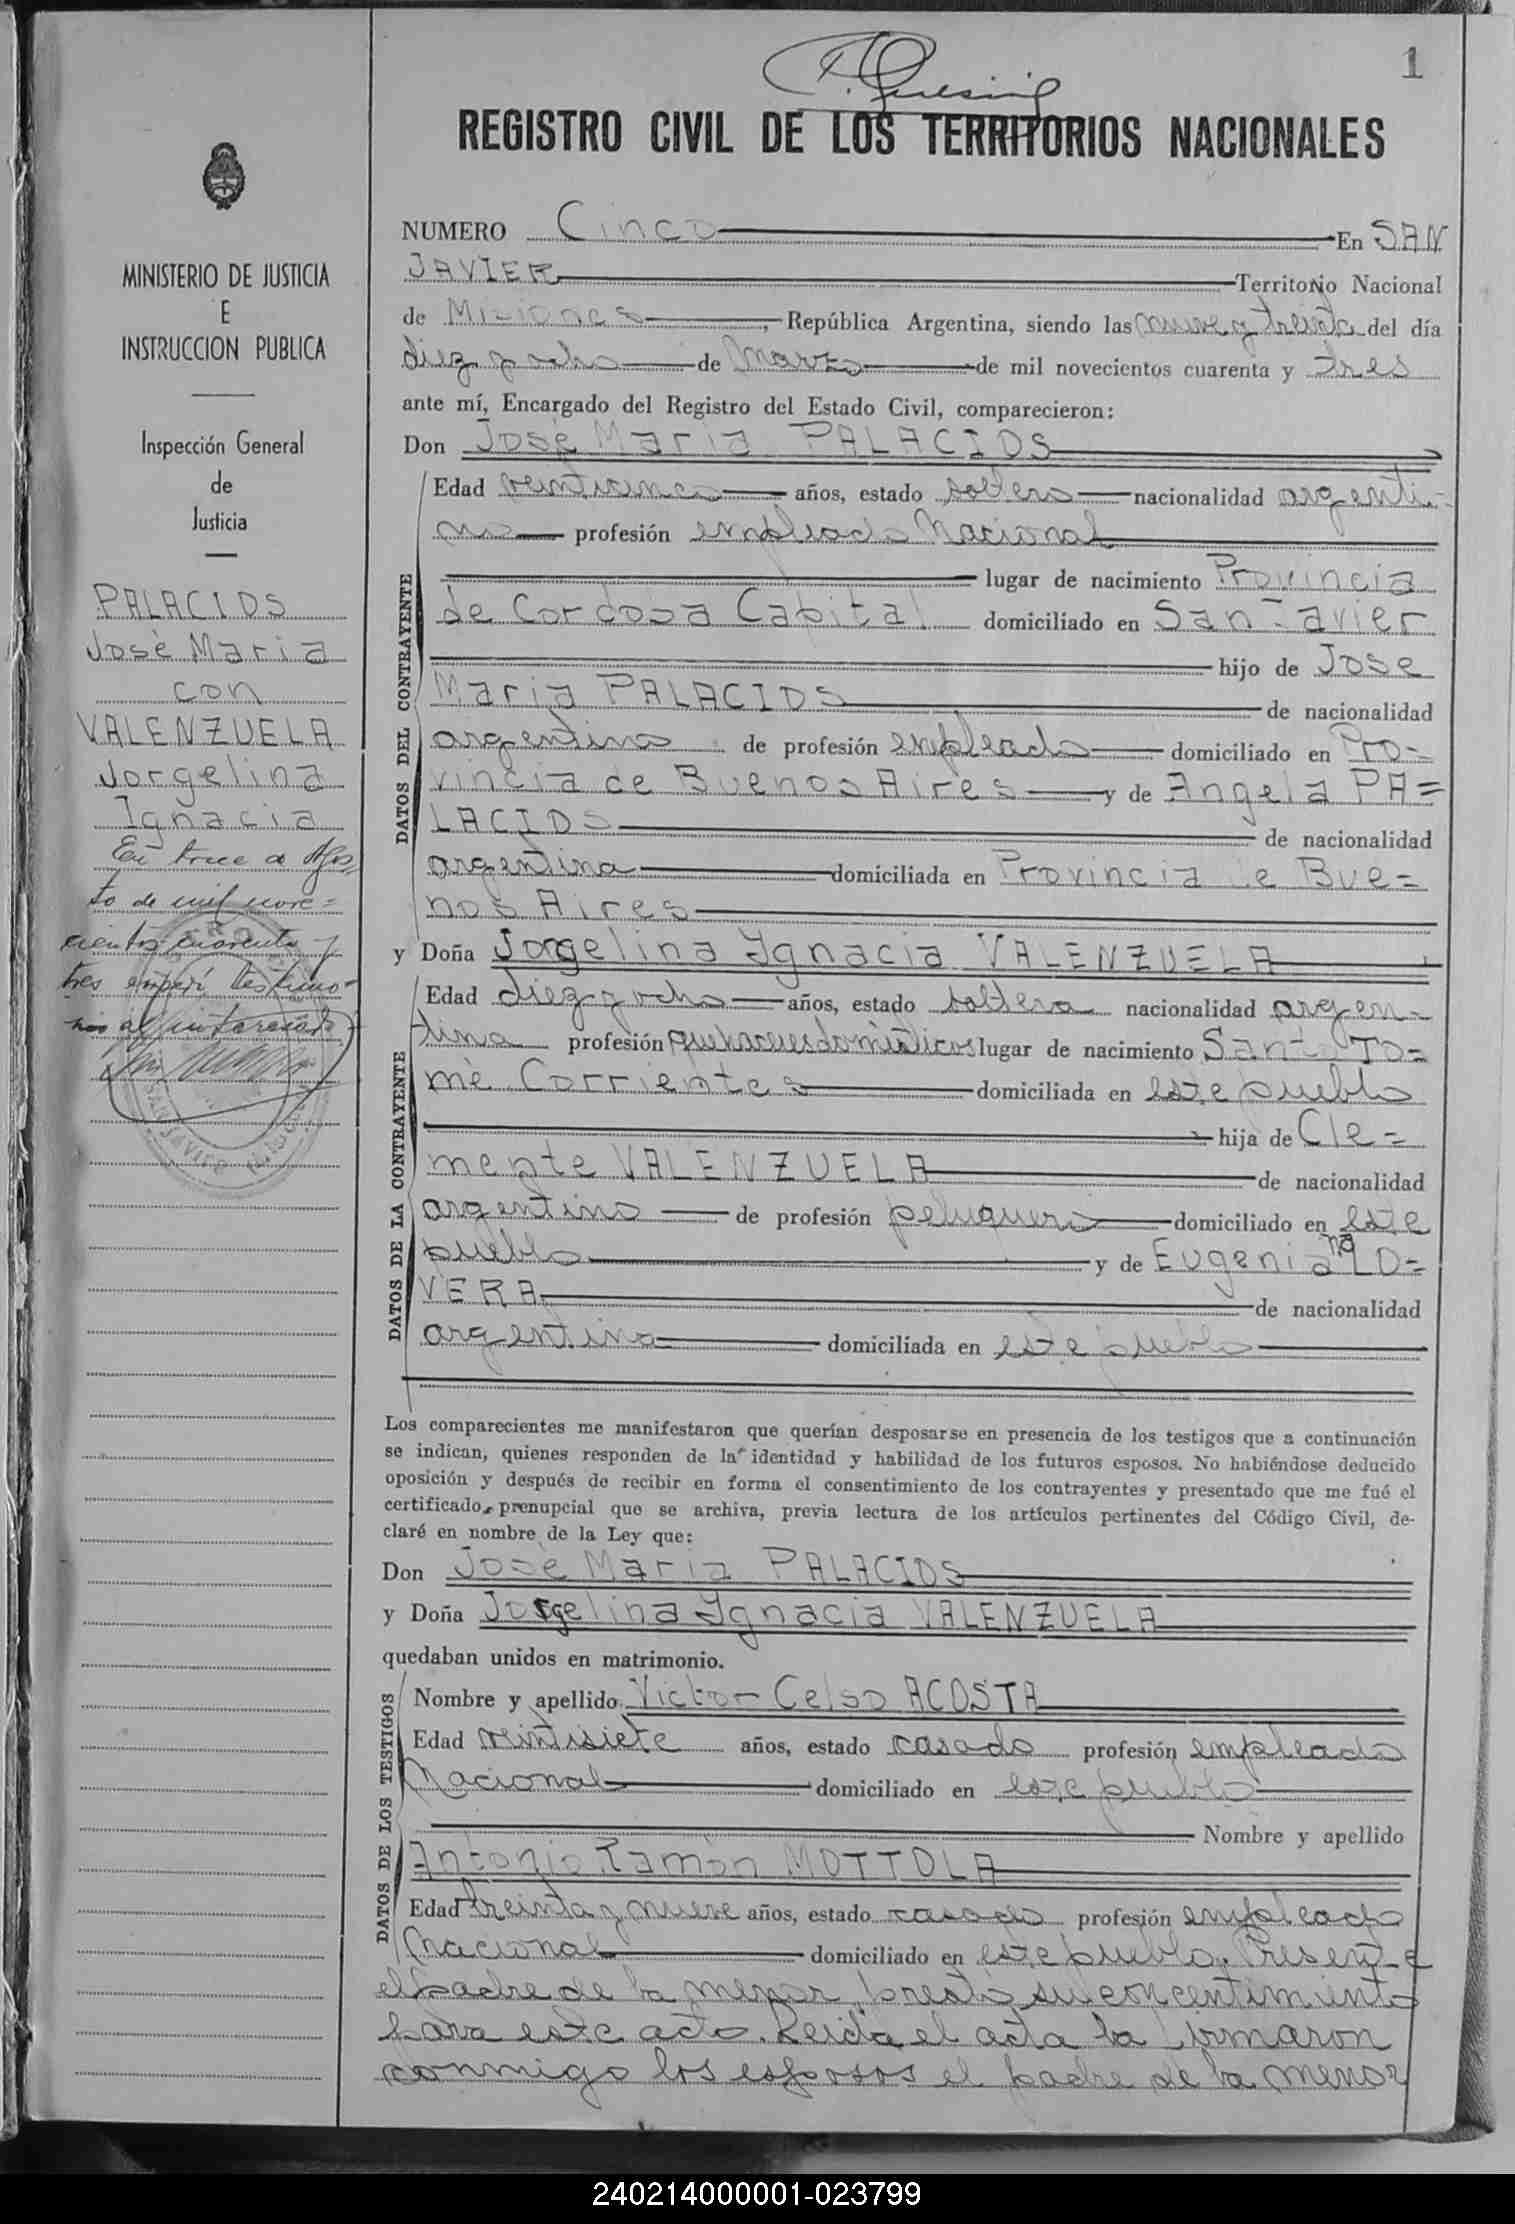 1
REGISTRO CIVIL DE LOS TERRITORIOS NACIONALES
MINISTERIO DE JUSTICIA
E
INSTRUCCION PUBLICA
Inspección General
de
Justicia
PALACIOS
José Maria
con
VALENZUELA
Jorgelina
Ignacia
En trece de Agos=
to de mil nove=
cientos cuarenta y
tres expedí testimo=
nio al interesado
NUMERO Cinco En SAN
JAVIER Territorio Nacional
de Misiones, República Argentina, siendo las nueve y treinta del día
diez y ocho de Marzo de mil novecientos cuarenta y tres
ante mí, Encargado del Registro del Estado Civil, comparecieron:
Don José Maria PALACIOS
DATOS DEL CONTRAYENTE
Edad veinticinco años, estado soltero nacionalidad argenti=
no profesión empleado Nacional
lugar de nacimiento Provincia
de Cordoba Capital domiciliado en San Javier
hijo de Jose
Maria PALACIOS de nacionalidad
argentino de profesión empleado domiciliado en Pro=
vincia de Buenos Aires y de Angela PA=
LACIOS de nacionalidad
argentina domiciliada en Provincia de Bue=
nos Aires
y Doña Jorgelina Ygnacia VALENZUELA
DATOS DE LA CONTRAYENTE
Edad diez y ocho años, estado soltera nacionalidad argen=
tina profesión quehaceres domésticos lugar de nacimiento Santo To=
mé Corrientes domiciliada en este pueblo
hija de Cle=
mente VALENZUELA de nacionalidad
argentino de profesión peluquero domiciliado en este
pueblo y de Eugenia LO=
VERA de nacionalidad
argentina domiciliada en este pueblo
Los comparecientes me manifestaron que querían desposarse en presencia de los testigos que a continuación
se indican, quienes responden de la identidad y habilidad de los futuros esposos. No habiéndose deducido
oposición y después de recibir en forma el consentimiento de los contrayentes y presentado que me fué el
certificado prenupcial que se archiva, previa lectura de los artículos pertinentes del Código Civil, de-
claré en nombre de la Ley que:
Don José Maria PALACIOS
y Doña Jorgelina Ygnacia VALENZUELA
quedaban unidos en matrimonio.
DATOS DE LOS TESTIGOS
Nombre y apellido Victor Celso ACOSTA
Edad veintisiete años, estado casado profesión empleado
Nacional domiciliado en este pueblo
Nombre y apellido
Antonio Ramón MOTTOLA
Edad treinta y nueve años, estado casado profesión empleado
Nacional domiciliado en este pueblo. Presente
el padre de la menor prestó su concentimiento
para este acto. Leida el acta la firmaron
conmigo los esposos el padre de la menor
240214000001-023799